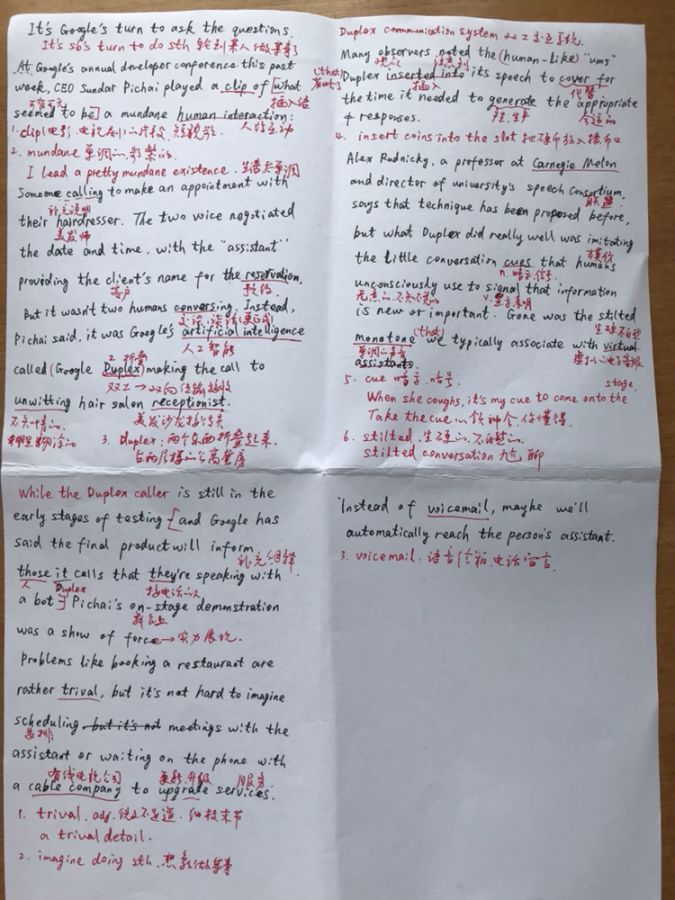 It's Google's turn to ask the questions.
It's sb's turn to do sth 轮到某人做某事了
At Google's annual developer conference this past
week, CEO Sundar Pichai played a clip of [what
插入语
seemed to be] a mundane human interaction:
1. clip(电影,电视
人际互动
2. mundane 单调的
I lead a pretty mundane existence. 生活
单调
Someone calling to make an appointment with
补充说明
their hairdresser. The two voice negotiated
美发师
the date and time. with the "assistant"
providing the client's name for the reservation.
客户 预约
But it wasn't two humans conversing. Instead,
交谈
Pichai said, it was Google's artificial intelligence
人工智能
called (Google Duplex) making the call to
双工→双向传输
unwitting hair salon receptionist.
不知情的
美发沙龙接待员
3. duplex: 两个
Duplex communication system 双工通信系统.
Many observers noted the (human-like) "ums"
(that)
Duplex inserted into its speech to cover for
插入 代替
the time it needed to generate the appropriate
产生 合适的
& responses.
4. insert coins into the slot 把硬币投入投币口
Alex Rudnicky, a professor at Carnegie Melon
and director of university's speech Consortium,
联盟
says that technique has been proposed before,
but what Duplex did really well was imitating
模仿
the little conversation cues that humans
n. 暗示
unconsciously use to signal that information
无意的 v.
is new or important. Gone was the stilted
生硬不自然
monotone (that) we typically associate with virtual
单调的声音
assistants.
5. cue 暗示.
stage.
When she coughs, it's my cue to come onto the
Take the cue
6. stilted. 生硬的.不自然的.
stilted conversation 尬聊
While the Duplex caller is still in the
early stages of testing [and Google has
said the final product will inform
补充解释
those it calls that they're speaking with
人 Duplex 接电话的人
a bot] Pichai's on-stage demonstration
舞台上
was a show of force→实力展现.
Problems like booking a restaurant are
rather trival, but it's not hard to imagine
scheduling but it's not meetings with the
安排
assistant or waiting on the phone with
有线电视公司 更新.升级 服务
a cable company to upgrade services.
1. trival. adj. 微不足道. 细枝末节
a trival detail.
2. imagine doing sth. 想象做某事
"Instead of voicemail, maybe we'll
automatically reach the person's assistant.
3. voicemail: 语音信箱 电话留言.